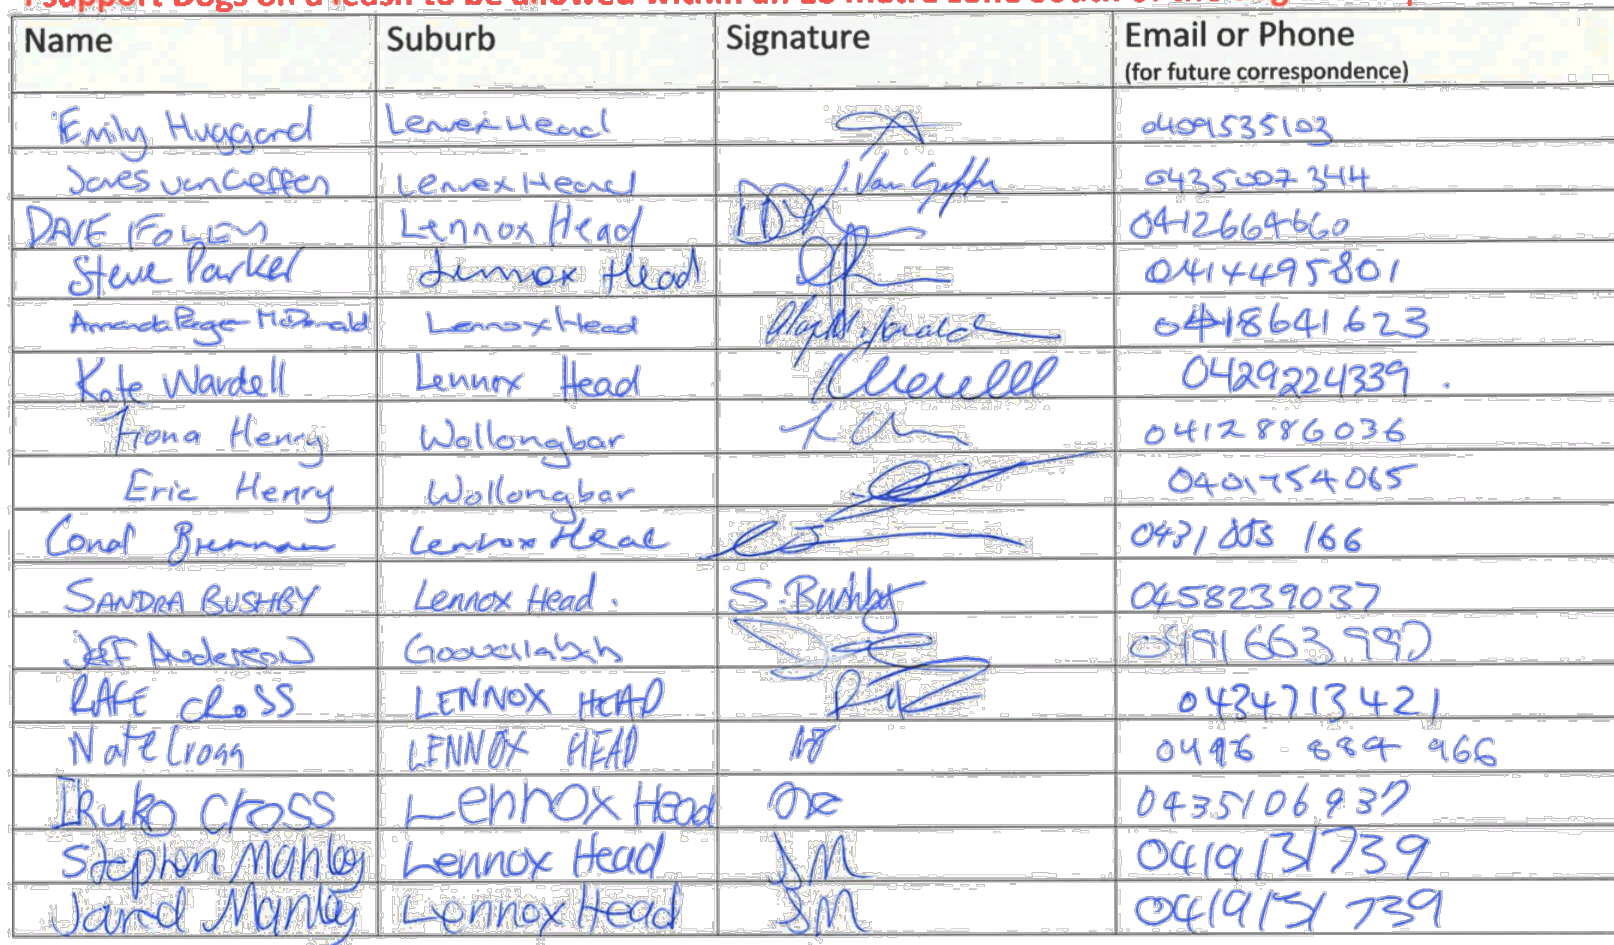 I support Dogs on a leash to be allowed within an
Name Suburb Signature Email or Phone
(for future correspondence)
Emily Huggard Lennox Head 0409535103
James van Geffen Lennox Head J. Van Geffen 0435007344
DAVE FOLEY Lennox Head 0412664660
Steve Parker Lennox Head 0414495801
Amanda Page-McDonald Lennox Head 0418641623
Kate Wardell Lennox Head 0429224339
Fiona Henry Wollongbar 0412886036
Eric Henry Wollongbar 0401754065
Conal Brennan Lennox Head 0431 166
SANDRA BUSHBY Lennox Head. S. Bushby 0458239037
Jeff Anderson Goonellabah
RAFE CROSS LENNOX HEAD 0434713421
Nate Cross LENNOX HEAD 966
Cross Lennox Head 0435106937
Stephen Manley Lennox Head SM 0419131739
Jarod Manley Lennox Head JM 0419131739